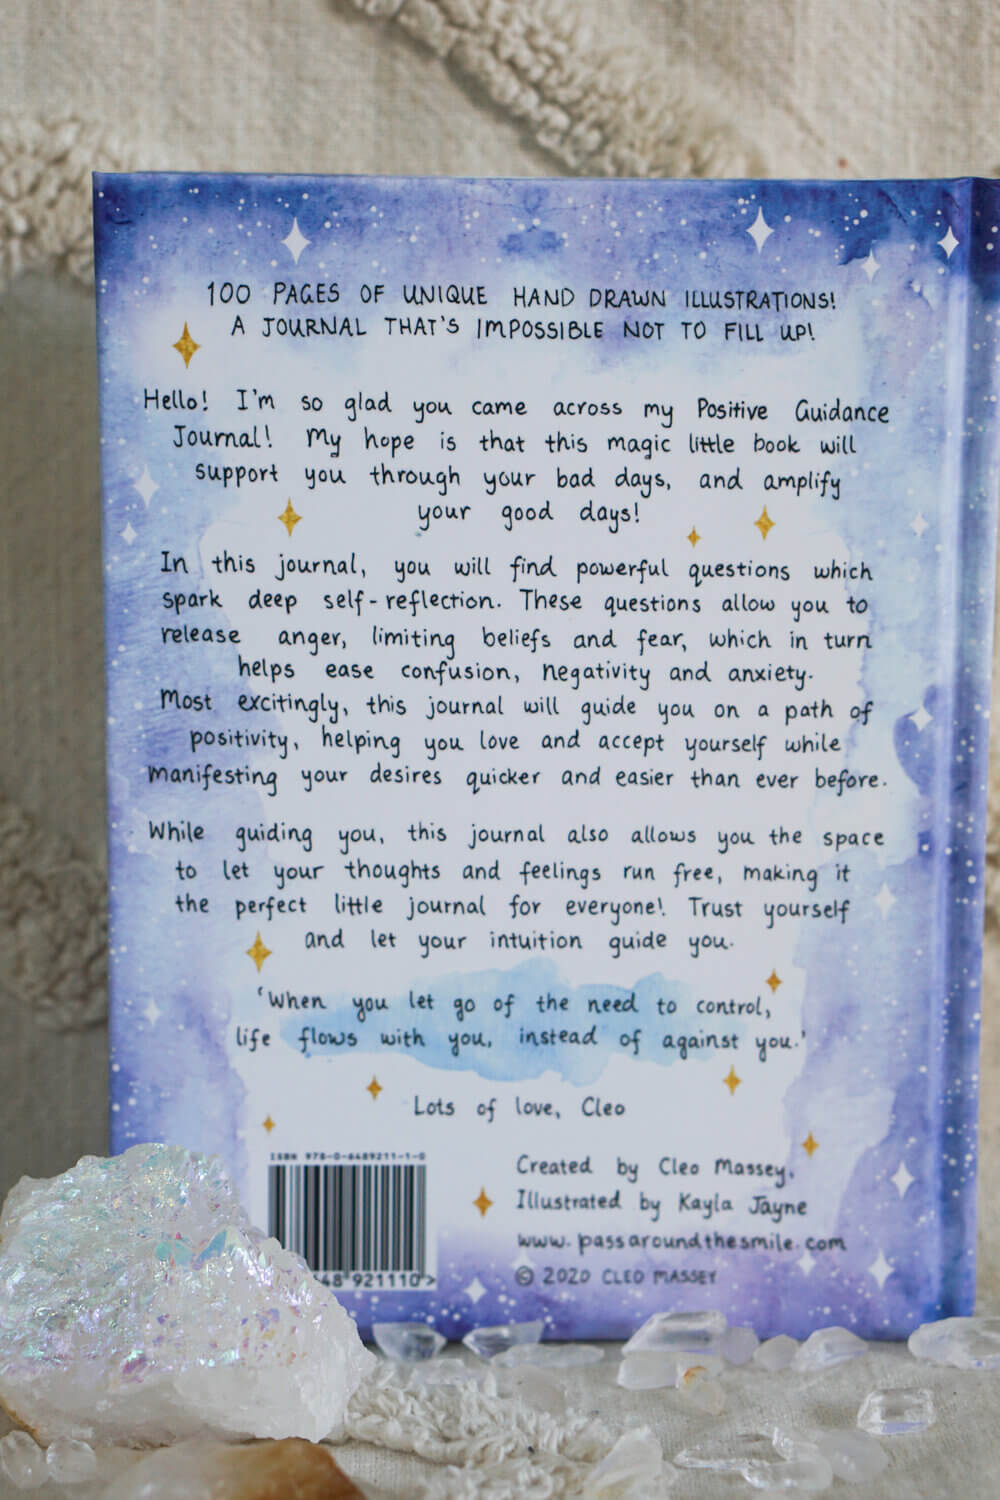 100 PAGES OF UNIQUE HAND DRAWN ILLUSTRATIONS!
A JOURNAL THAT'S IMPOSSIBLE NOT TO FILL UP!
Hello! I'm so glad you came across my Positive Guidance
Journal! My hope is that this magic little book will
support you through your bad days, and amplify
your good days!
In this journal, you will find powerful questions which
spark deep self-reflection. These questions allow you to
release anger, limiting beliefs and fear, which in turn
helps ease confusion, negativity and anxiety.
Most excitingly, this journal will guide you on a path of
positivity, helping you love and accept yourself while
manifesting your desires quicker and easier than ever before.
While guiding you, this journal also allows you the space
to let your thoughts and feelings run free, making it
the perfect little journal for everyone! Trust yourself
and let your intuition guide you.
'When you let go of the need to control,
life flows with you, instead of against you.'
Lots of love, Cleo
ISBN 978-0-6489211-1-0
48 921110 >
Created by Cleo Massey.
Illustrated by Kayla Jayne
www.passaroundthesmile.com
© 2020 CLEO MASSEY